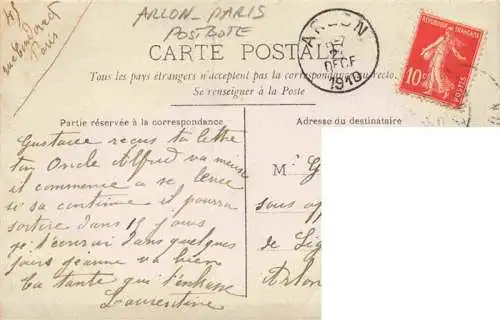 45
rue
Paris
ARLON - PARIS
POSTBOTE
CARTE POSTALE
Tous les pays étrangers n'acceptent pas la correspondance au recto.
Se renseigner à la Poste
ARLON
DECE
1910
REPUBLIQUE FRANÇAISE
10c
POSTES
Partie réservée à la correspondance
Gustave reçus ta lettre
ton Oncle Alfred va mieux
il commence a se lever
si sa continue il pourra
sortire dans 15 jours
je t'écrirai dans quelques
jours jeanne va bien
ta tante qui t'enbrasse
Laurentine
Adresse du destinataire
M. G
sous
de Lig
Arlon